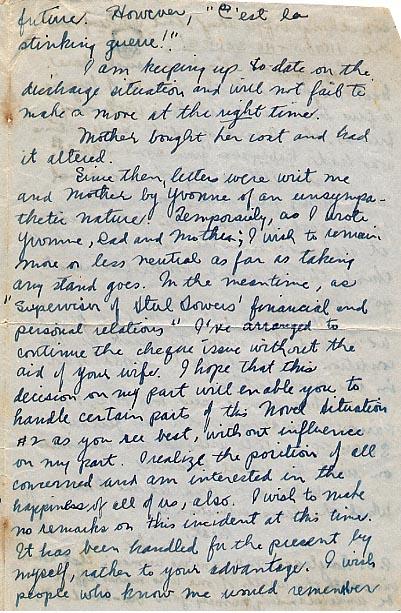 future. However, "C'est la
stinking guerre!"
I am keeping up to date on the
discharge situation and will not fail to
make a move at the right time.
Mother bought her coat and had
it altered.
Since then, letters were writ me
and Mother by Yvonne of an unsympa-
thetic nature. Temporarily, as I wrote
Yvonne, Dad and Mother; I wish to remain
more or less neutral as far as taking
any stand goes. In the meantime, as
"Supervisor of Sowers' financial and
personal relations" I've arranged to
continue the cheque issue without the
aid of your wife. I hope that this
decision on my part will enable you to
handle certain parts of this Novel Situation
#2 as you see best, without influence
on my part. I realize the position of all
concerned and am interested in the
happiness of all of us, also. I wish to make
no remarks on this incident at this time.
It has been handled for the present by
myself, rather to your advantage. I wish
people who know me would remember